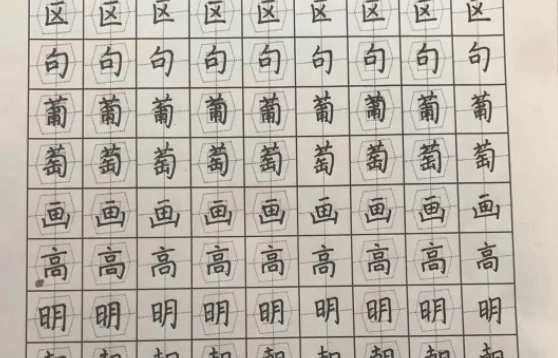 区区区区区区区区区
句句句句句句句句句
葡葡葡葡葡葡葡葡葡
萄萄萄萄萄萄萄萄萄
画画画画画画画画画
高高高高高高高高高
明明明明明明明明明